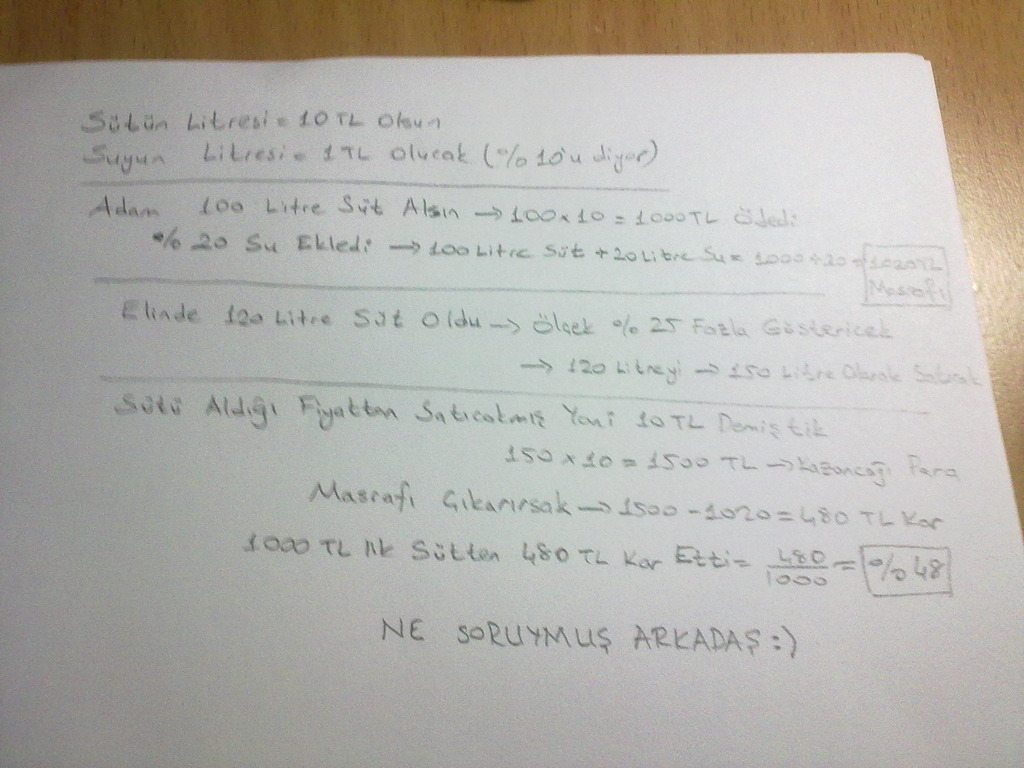 Sütün Litresi = 10 TL Olsun
Suyun Litresi = 1 TL Olucak (%10'u diyor)
Adam 100 Litre Süt Alsın → 100 x 10 = 1000 TL Ödedi
%20 Su Ekledi → 100 Litre Süt + 20 Litre Su = 1000 + 20 = 1020 TL Masrafı
Elinde 120 Litre Süt Oldu → Ölçek %25 Fazla Göstericek
→ 120 Litreyi → 150 Litre Olarak Satıcak
Sütü Aldığı Fiyattan Satıcakmış Yani 10 TL Demiştik
150 x 10 = 1500 TL → Kazancağı Para
Masrafı Çıkarırsak → 1500 - 1020 = 480 TL Kar
1000 TL lik Sütten 480 TL Kar Etti = 480/1000 = %48
NE SORUYMUŞ ARKADAŞ :)